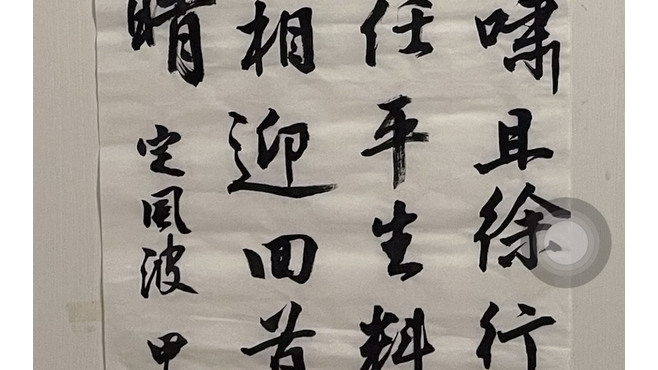 嘯且徐行
任平生料
相迎回首
晴
定風波甲